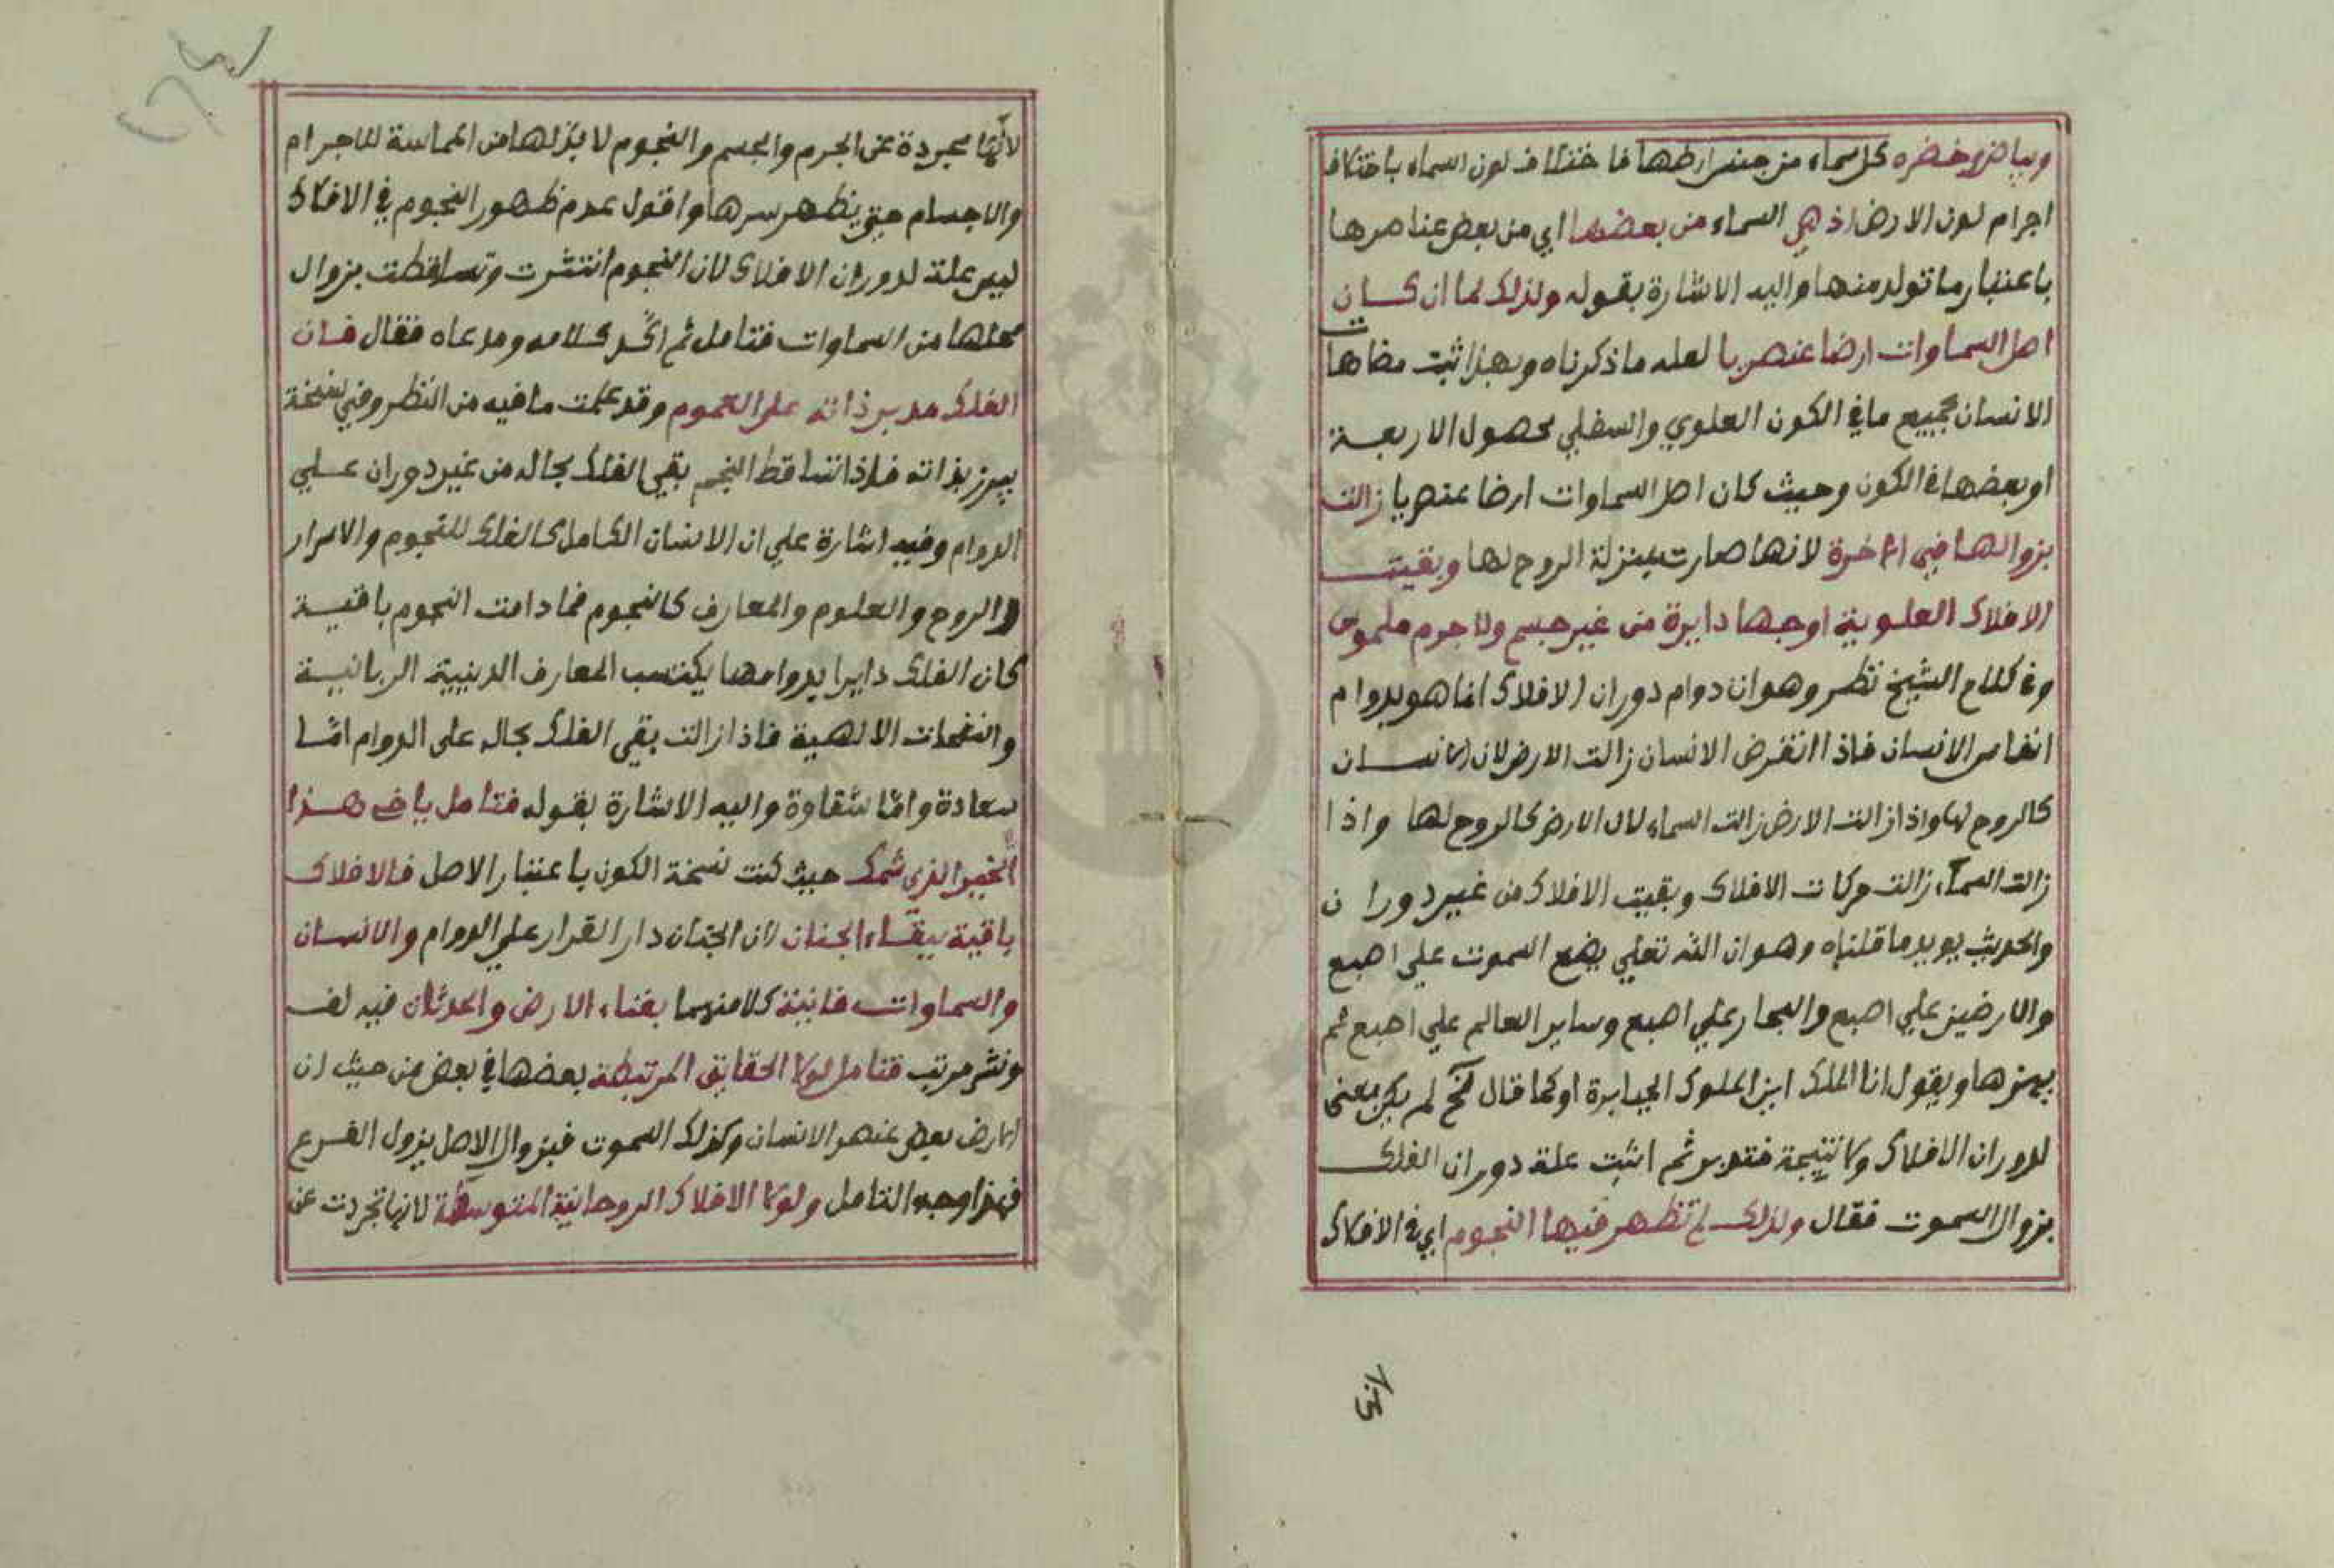 وبياض وخضره كل سماء من جنس ارضها فاختلاف لون السماء باختلاف
اجرام لون الارض اذ هي السماء من بعضها اي من بعض عناصرها
باعتبار ما تولد منها واليه الاشارة بقوله ولذلك لما ان كان
اصل السماوات ارضا عنصريا لعله ماذكرناه وبهذا ثبت مضاهات
الانسان بجميع ما في الكون العلوي والسفلي بحصول الاربعة
او بعضها في الكون وحيث كان اصل السماوات ارضا عنصريا زالت
بزوالها في الاخرة لانها صارت بمنزلة الروح لها وبقيت
الافلاك العلوية اوجها دايرة من غير جسم ولا جرم ملموس
وفي كلام الشيخ نظر وهو ان دوام دوران الافلاك انما هو بدوام
انفاس الانسان فاذا انقرض الانسان زالت الارض لان الانسان
كالروح لها واذا زالت الارض زالت السماء لان الارض كالروح لها واذا
زالت السمآء زالت حركات الافلاك وبقيت الافلاك من غير دوران
والحديث يويد ما قلناه وهو ان الله تعلي يضع السموت علي اصبع
والارضين علي اصبع والبحار علي اصبع وساير العالم علي اصبع ثم
يهزها ويقول انا الملك اين الملوك الجبابرة او كما قال لم يكن معنى
لدوران الافلاك ولا نتيجة فتدبر ثم اثبت علة دوران الفلك
بزوال السموت فقال ولذلك لم تظهر فيها النجوم اي في الافلاك
لانها
لانّها مجردة عن الجرم والجسم والنجوم لا بدّ لها من المماسة للاجرام
والاجسام حتي يظهر سرها واقول عدم ظهور النجوم في الافلاك
ليس علة لدوران الافلاك لان النجوم انتثرت وتساقطت بزوال
محلها من السماوات فتامل ثم اكّد كلامه ومدعاه فقال فان
الفلك مدبر ذاته على العموم وقد علمت ما فيه من النظر وفي نسخة
يبرز بذاته فاذا تساقط النجم بقي الفلك بحاله من غير دوران علي
الدوام وفيه اشارة علي ان الانسان الكامل كالفلك للنجوم والاسرار
والروح والعلوم والمعارف كالنجوم فما دامت النجوم باقية
كان الفلك دايرا بدوامها يكتسب المعارف الدينية الربانية
والنفحات الالهية فاذا زالت بقي الفلك بحاله على الدوام امّا
سعادة وامّا شقاوة واليه الاشارة بقوله فتامل يا اخي هذا
الخبير الذي شمك حيث كنت نسخة الكون باعتبار الاصل فالافلاك
باقية ببقاء الجنان لان الجنان دار القرار علي الدوام والانسان
والسماوات فانية كلا منهما بفناء الارض والحدثان فيه لف
ونشر مرتب فتامل لولا الحقايق المرتبطة بعضها في بعض من حيث ان
الارض بعض عنصر الانسان وكذلك السموت فبزوال الاصل يزول الفرع
فهذا وجه التامل ولولا الافلاك الروحانية المتوسطة لانها تجردت عن